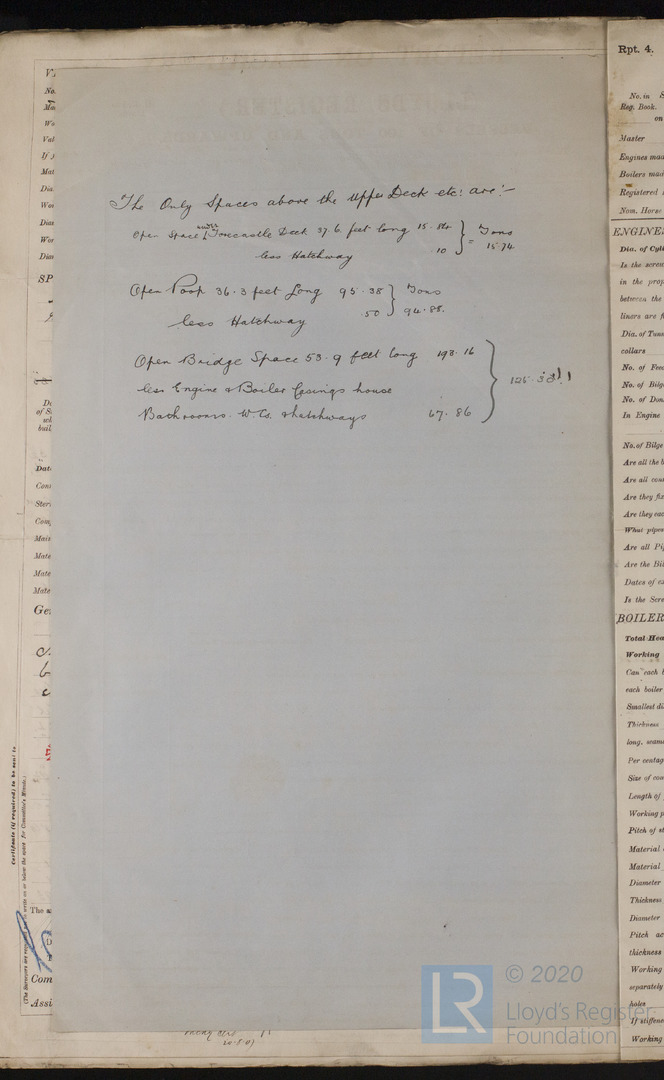 The Only Spaces above the Upper Deck etc: are:-
Open Space under Forecastle Deck 37.6 feet long 15.84 } Tons
less Hatchway 10 } = 15.74
Open Poop 36.3 feet Long 95.38 } Tons
less Hatchway 50 } 94.88.
Open Bridge Space 53.9 feet long 193.16
less Engine & Boiler Casings house
Bathrooms. W.Cs. & hatchways 67.86
Rpt. 4.
No. in
Reg. Book.
on
Master
Engines mad
Boilers mad
Registered
Nom. Horse
ENGINES
Dia. of Cyl
Is the screw
in the prop
between the
liners are f
Dia. of Tun
collars
No. of Feed
No. of Bilg
No. of Don
In Engine
No. of Bilge
Are all the b
Are all con
Are they fix
Are they eac
What pipes
Are all Pi
Are the Bil
Dates of ex
Is the Scre
BOILER
Total Hea
Working
Can each b
each boiler
Smallest di
Thickness
long. seam
Per centag
Size of com
Length of
Working p
Pitch of st
Material
Material
Diameter
Thickness
Diameter
Pitch ac
thickness
Working
separately
holes
If stiffene
Working
SP
Date
Com
Mate
Mate
Mate
Ge
Certificate (if required) to be sent to
The a
Com
Assi
20.8.07
LR
© 2020
Lloyd's Register
Foundation